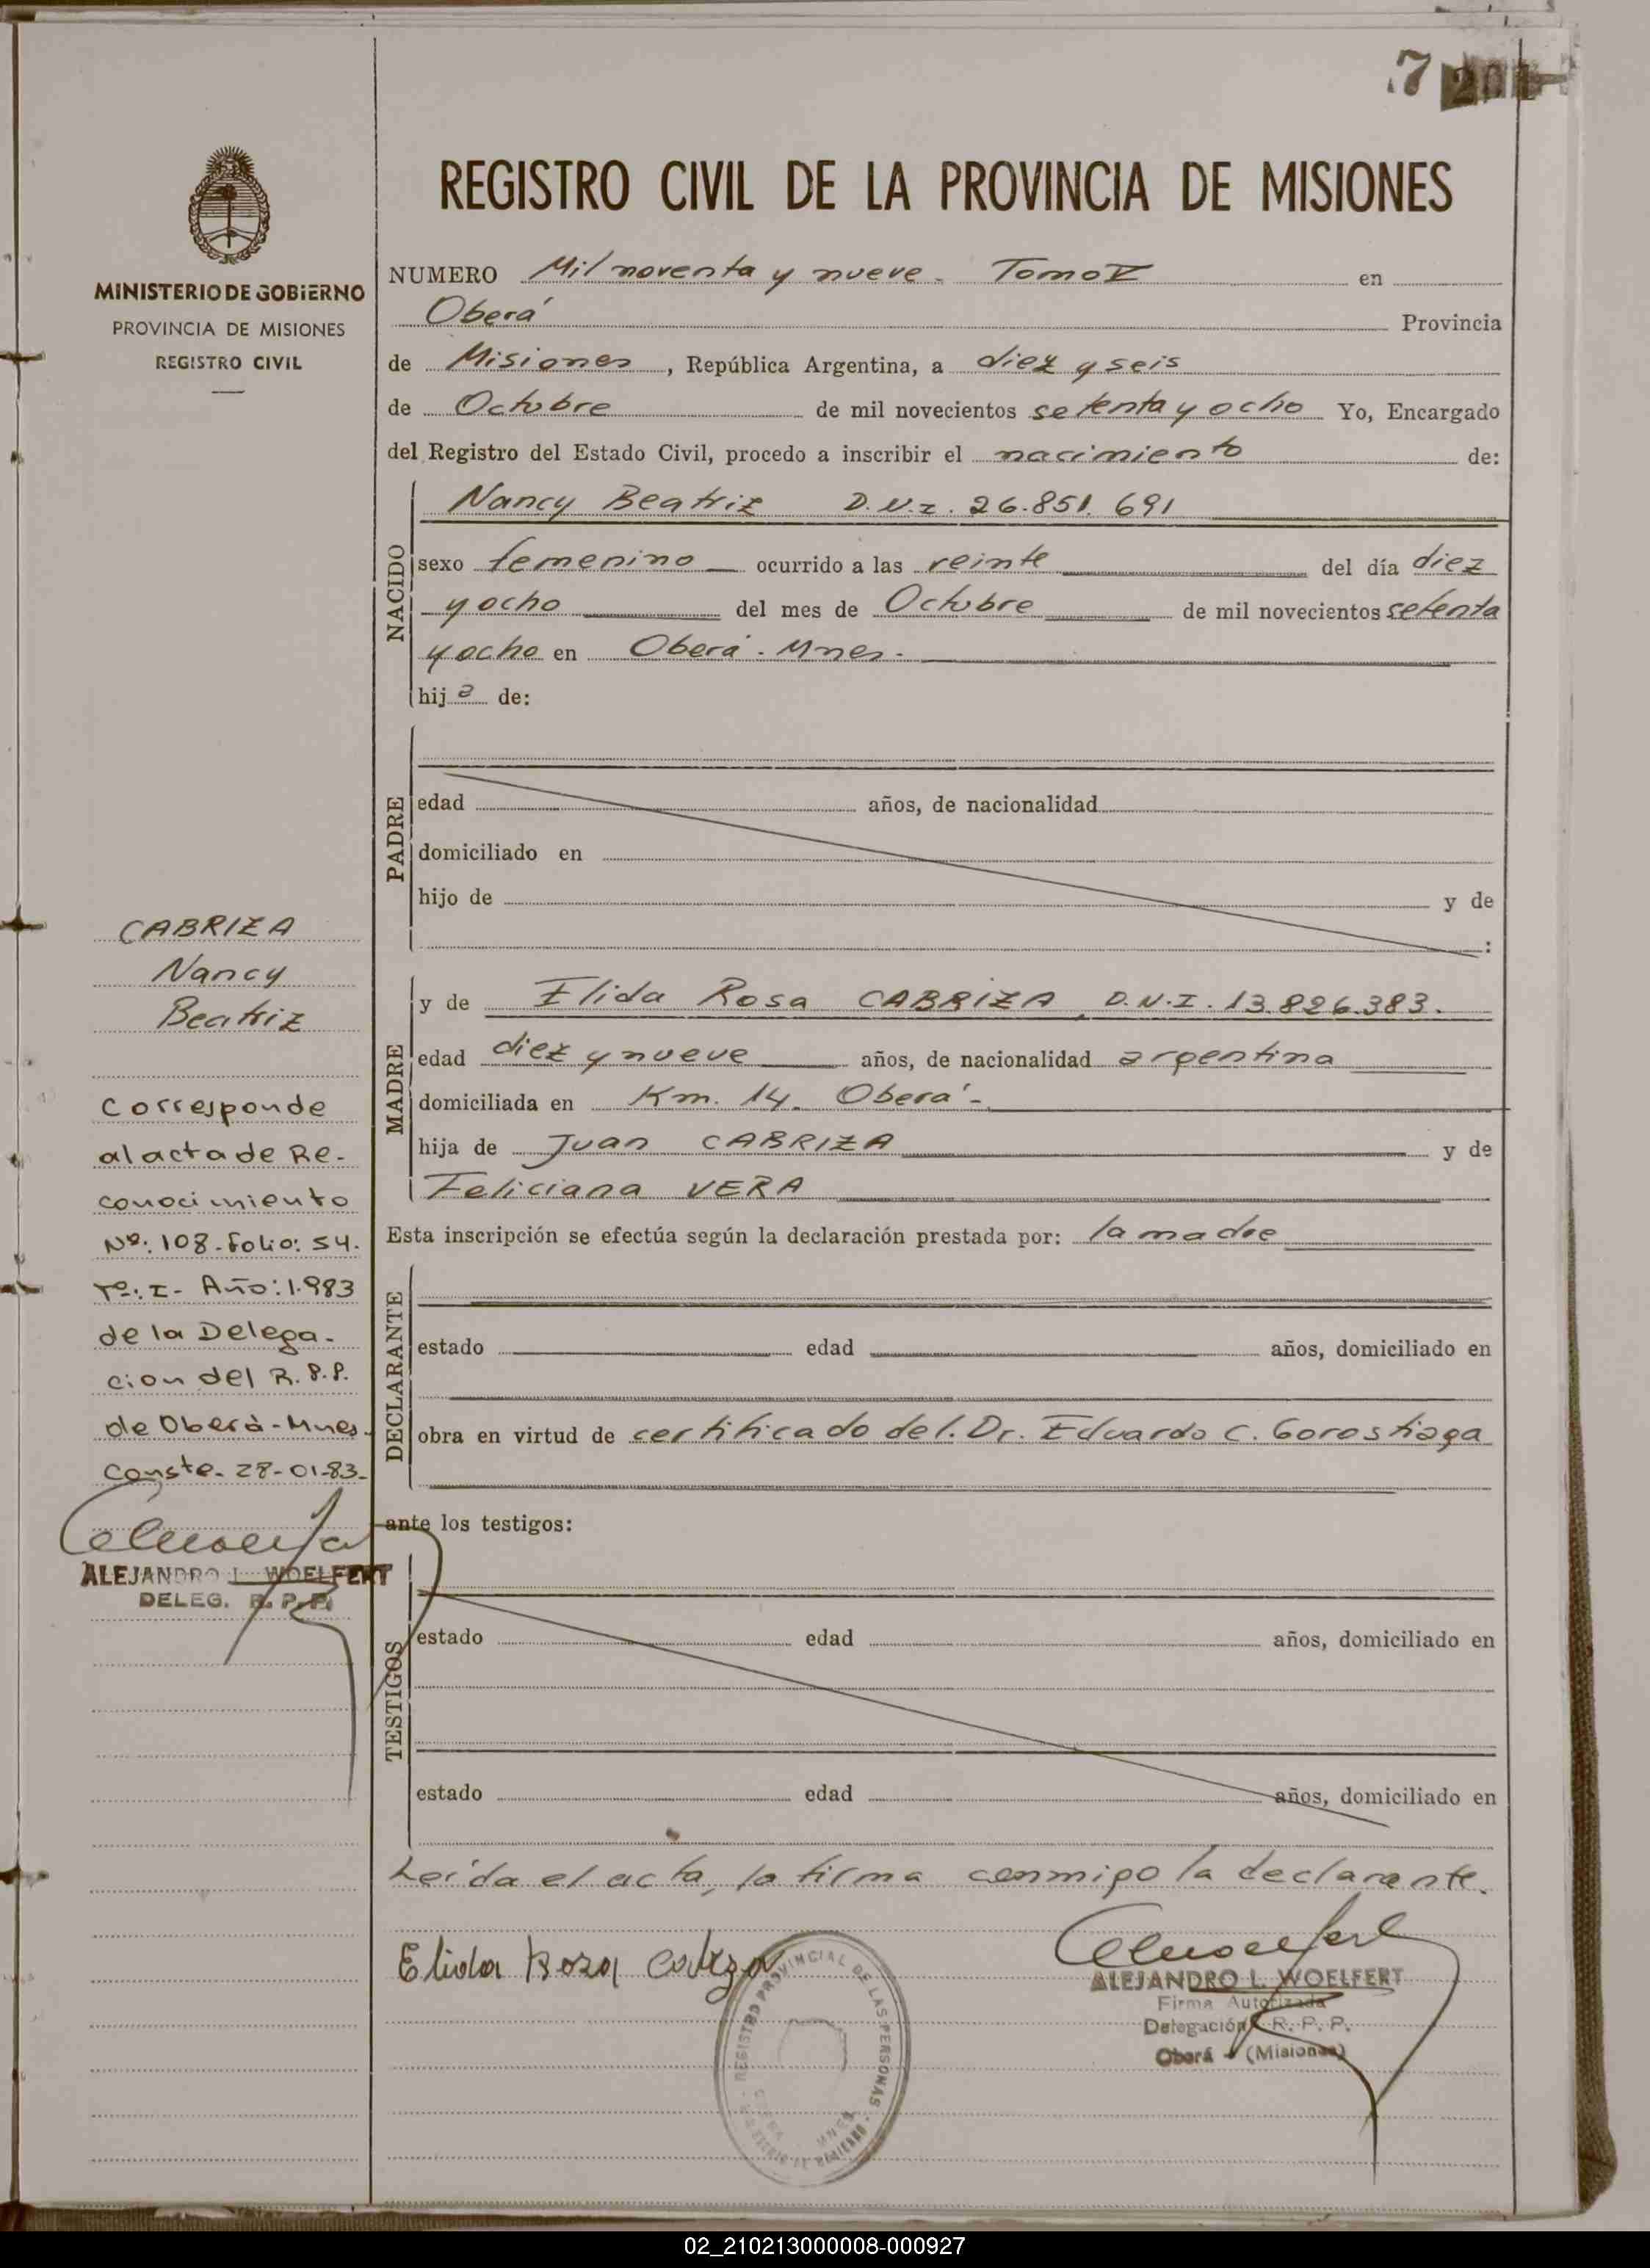 7
REGISTRO CIVIL DE LA PROVINCIA DE MISIONES
MINISTERIO DE GOBIERNO
PROVINCIA DE MISIONES
REGISTRO CIVIL
NUMERO Mil noventa y nueve. Tomo V en
Oberá Provincia
de Misiones, República Argentina, a diez y seis
de Octubre de mil novecientos setenta y ocho Yo, Encargado
del Registro del Estado Civil, procedo a inscribir el nacimiento de:
NACIDO
Nancy Beatriz D.N.I. 26.851.691
sexo femenino ocurrido a las veinte del día diez
y ocho del mes de Octubre de mil novecientos setenta
y ocho en Oberá. Mnes.
hija de:
PADRE
edad años, de nacionalidad
domiciliado en
hijo de y de
:
CABRIZA
Nancy
Beatriz
MADRE
y de Elida Rosa CABRIZA, D.N.I. 13.826.383.
edad diez y nueve años, de nacionalidad argentina
domiciliada en Km. 14. Oberá-
hija de Juan CABRIZA y de
Feliciana VERA
Corresponde
al acta de Re-
conocimiento
Nº: 108. Folio: 54.
Tº: I- Año: 1.983
de la Delega-
cion del R.P.P.
de Oberá-Mnes.
Conste. 28-01-83.
ALEJANDRO L. WOELFERT
DELEG. R. P. P.
Esta inscripción se efectúa según la declaración prestada por: la madre
DECLARANTE
estado edad años, domiciliado en
obra en virtud de certificado del. Dr. Eduardo C. Gorostiaga
ante los testigos:
TESTIGOS
estado edad años, domiciliado en
estado edad años, domiciliado en
Leída el acta, la firma conmigo la declarante.
Elida Rosa Cabriza
REGISTRO PROVINCIAL DE LAS PERSONAS
MNES
ALEJANDRO L. WOELFERT
Firma Autorizada
Delegación R. P. P.
Oberá - (Misiones)
02_210213000008-000927